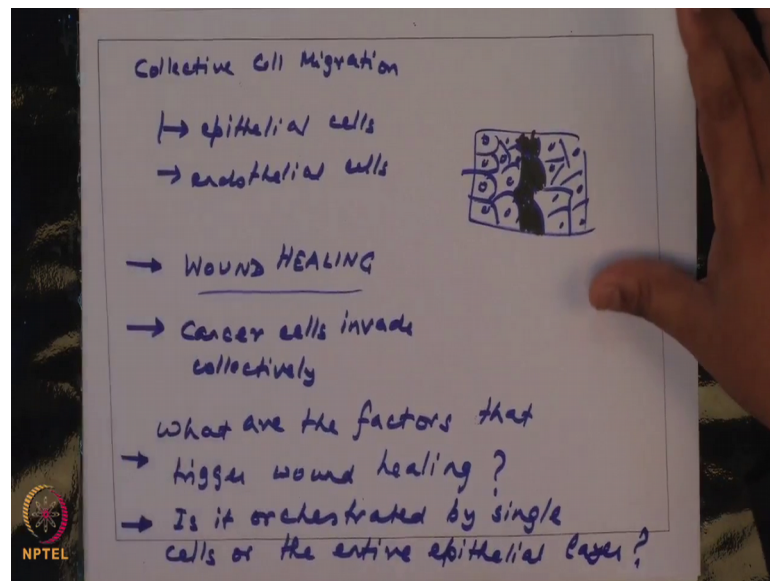 Collective Cell Migration
→ epithelial cells
→ endothelial cells
→ WOUND HEALING
→ Cancer cells invade
collectively
What are the factors that
→ trigger wound healing?
→ Is it orchestrated by single
cells or the entire epithelial layer?
NPTEL